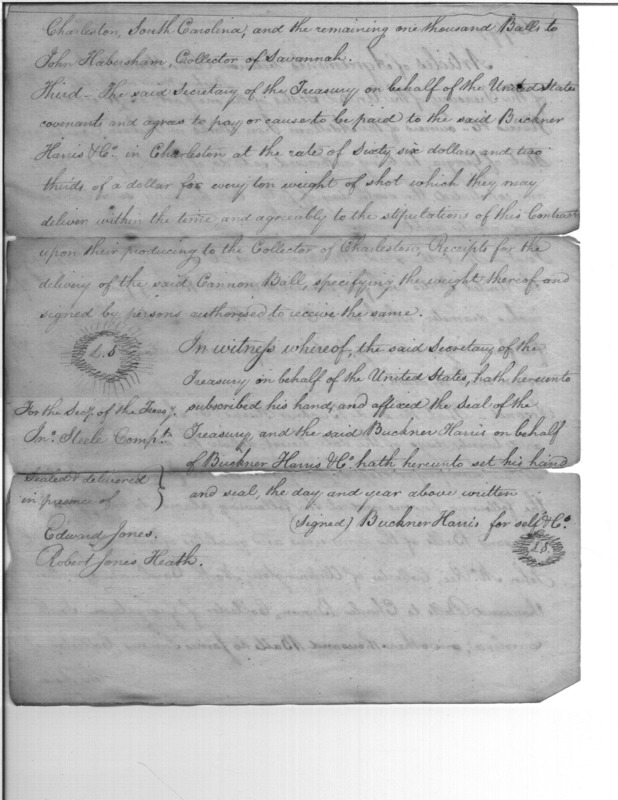 Charleston, South Carolina, and the remaining one thousand Balls to
John Habersham, Collector of Savannah.
Third – The said Secretary of the Treasury on behalf of the United States
covenants and agrees to pay or cause to be paid to the said Buckner
Harris & Co. in Charleston at the rate of Sixty six dollars and two
thirds of a dollar for every ton weight of shot which they may
deliver within the time and agreeably to the stipulations of this Contract
upon their producing to the Collector of Charleston, Receipts for the
delivery of the said Cannon Ball, specifying the weight thereof and
signed by persons authorised to receive the same.
L.S
In witness whereof, the said Secretary of the
Treasury on behalf of the United States, hath hereunto
subscribed his hand, and affixed the Seal of the
Treasury, and the said Buckner Harris on behalf
of Buckner Harris & Co. hath hereunto set his hand
and seal, the day and year above written
For the Secy. of the Treasy.
Jno. Steele Compt.
Sealed & delivered
in presence of
Edward Jones.
Robert Jones Heath.
(Signed) Buckner Harris for self & Co.
L.S.